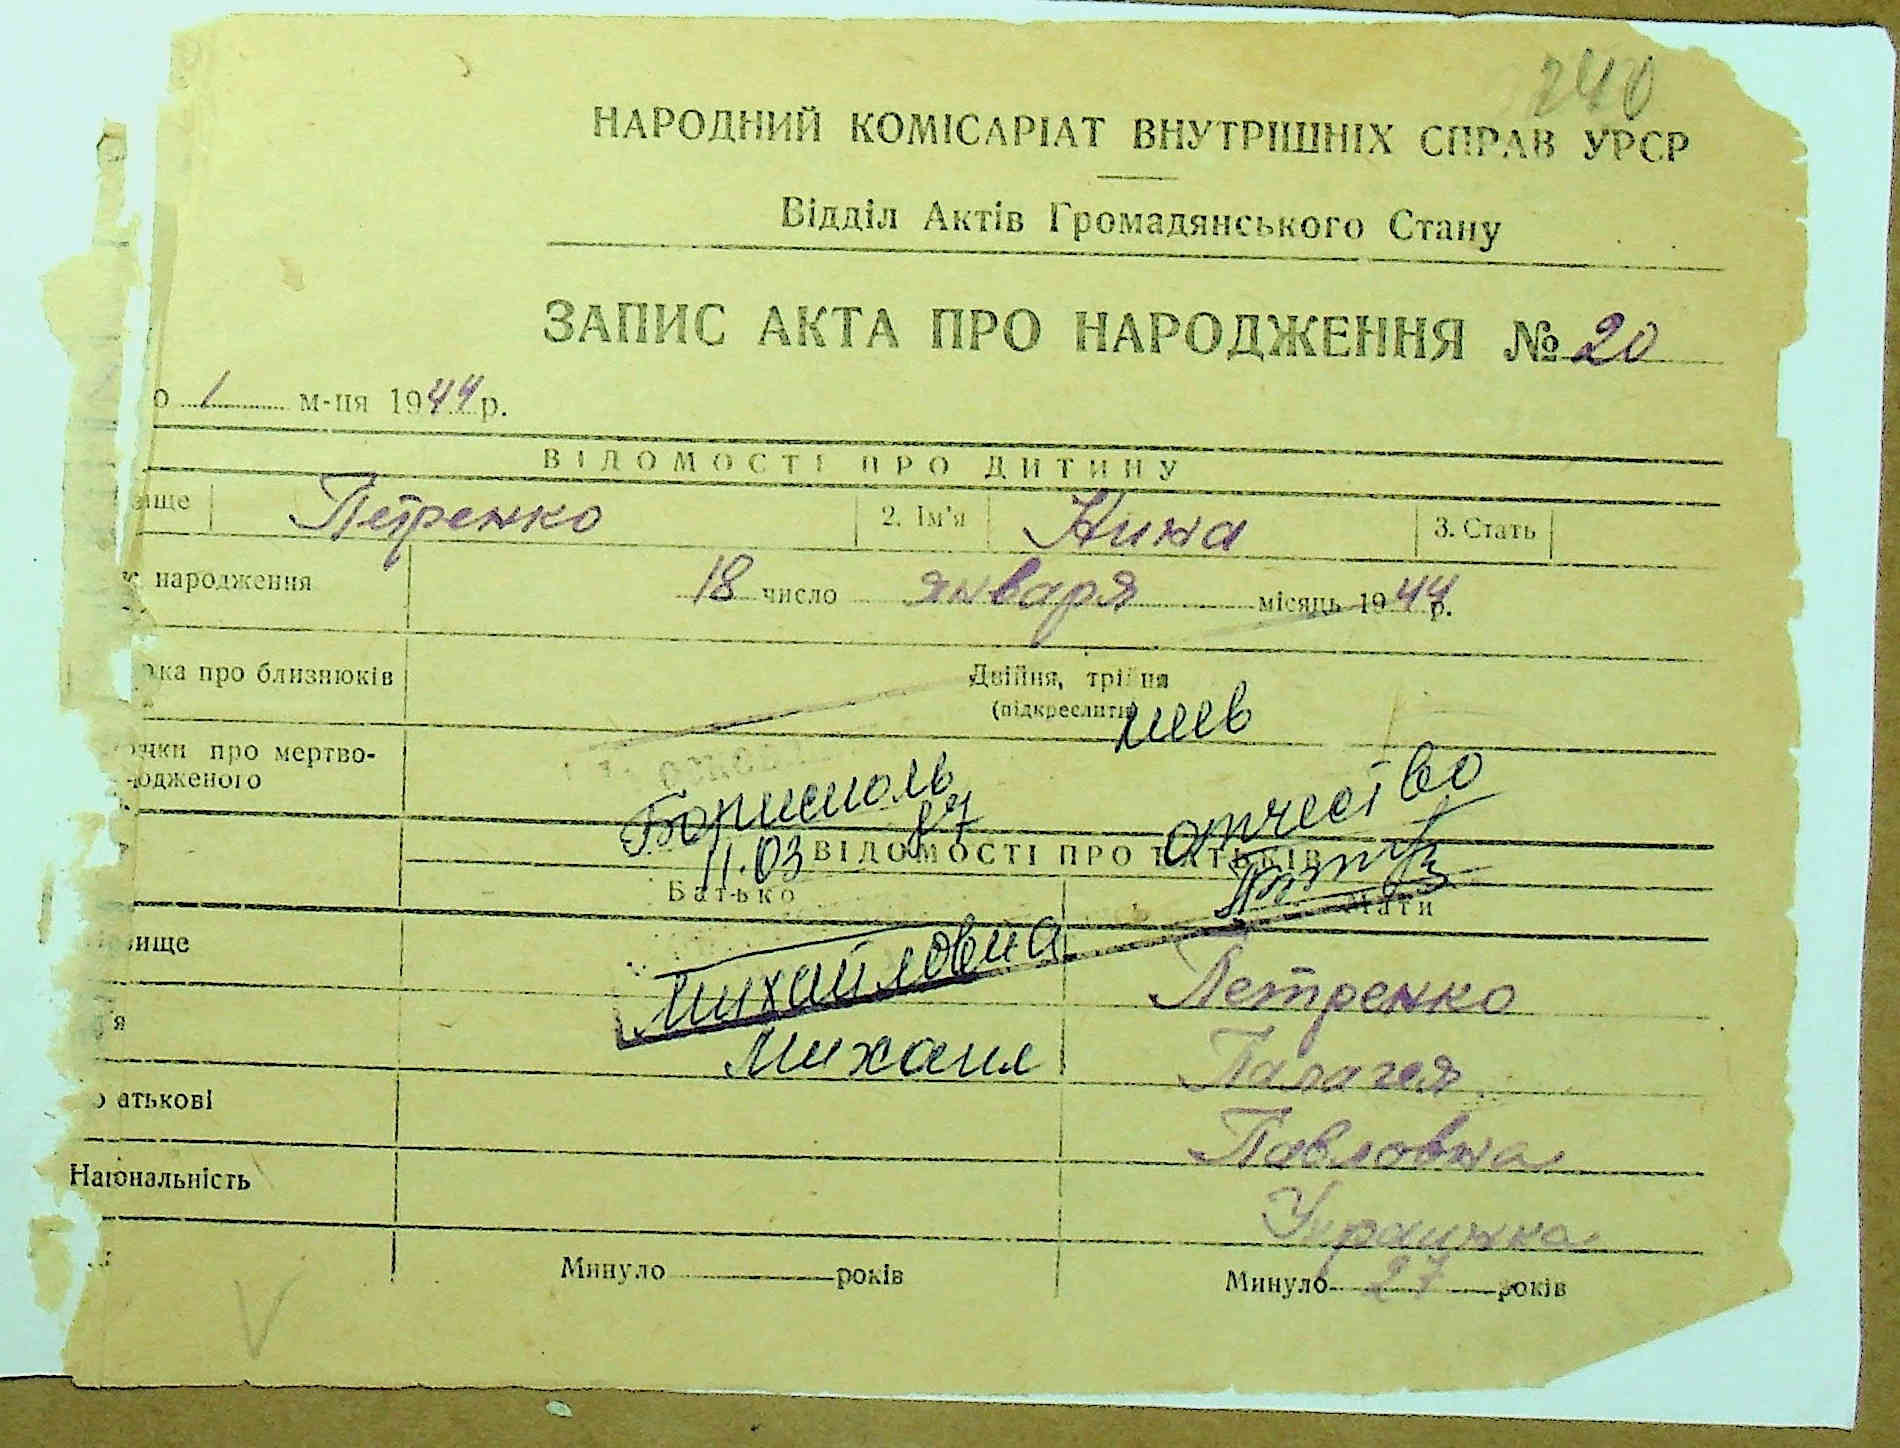 240
НАРОДНИЙ КОМІСАРІАТ ВНУТРІШНІХ СПРАВ УРСР
Відділ Актів Громадянського Стану
ЗАПИС АКТА ПРО НАРОДЖЕННЯ № 20
о 1 м-ця 1944 р.
ВІДОМОСТІ ПРО ДИТИНУ
ище Петренко 2. Ім'я Нина 3. Стать
народження 18 число января місяць 1944 р.
ка про близнюків Двійня, трійня
(підкреслити)
чки про мертво-
одженого
Бориспіль отчество
11.03 87
ВІДОМОСТІ ПРО БАТЬКІВ
Батько Мати
ище Михайловна Петренко
я Михаил Палагея
атькові Павловна
Національність Украинка
Минуло років Минуло 27 років